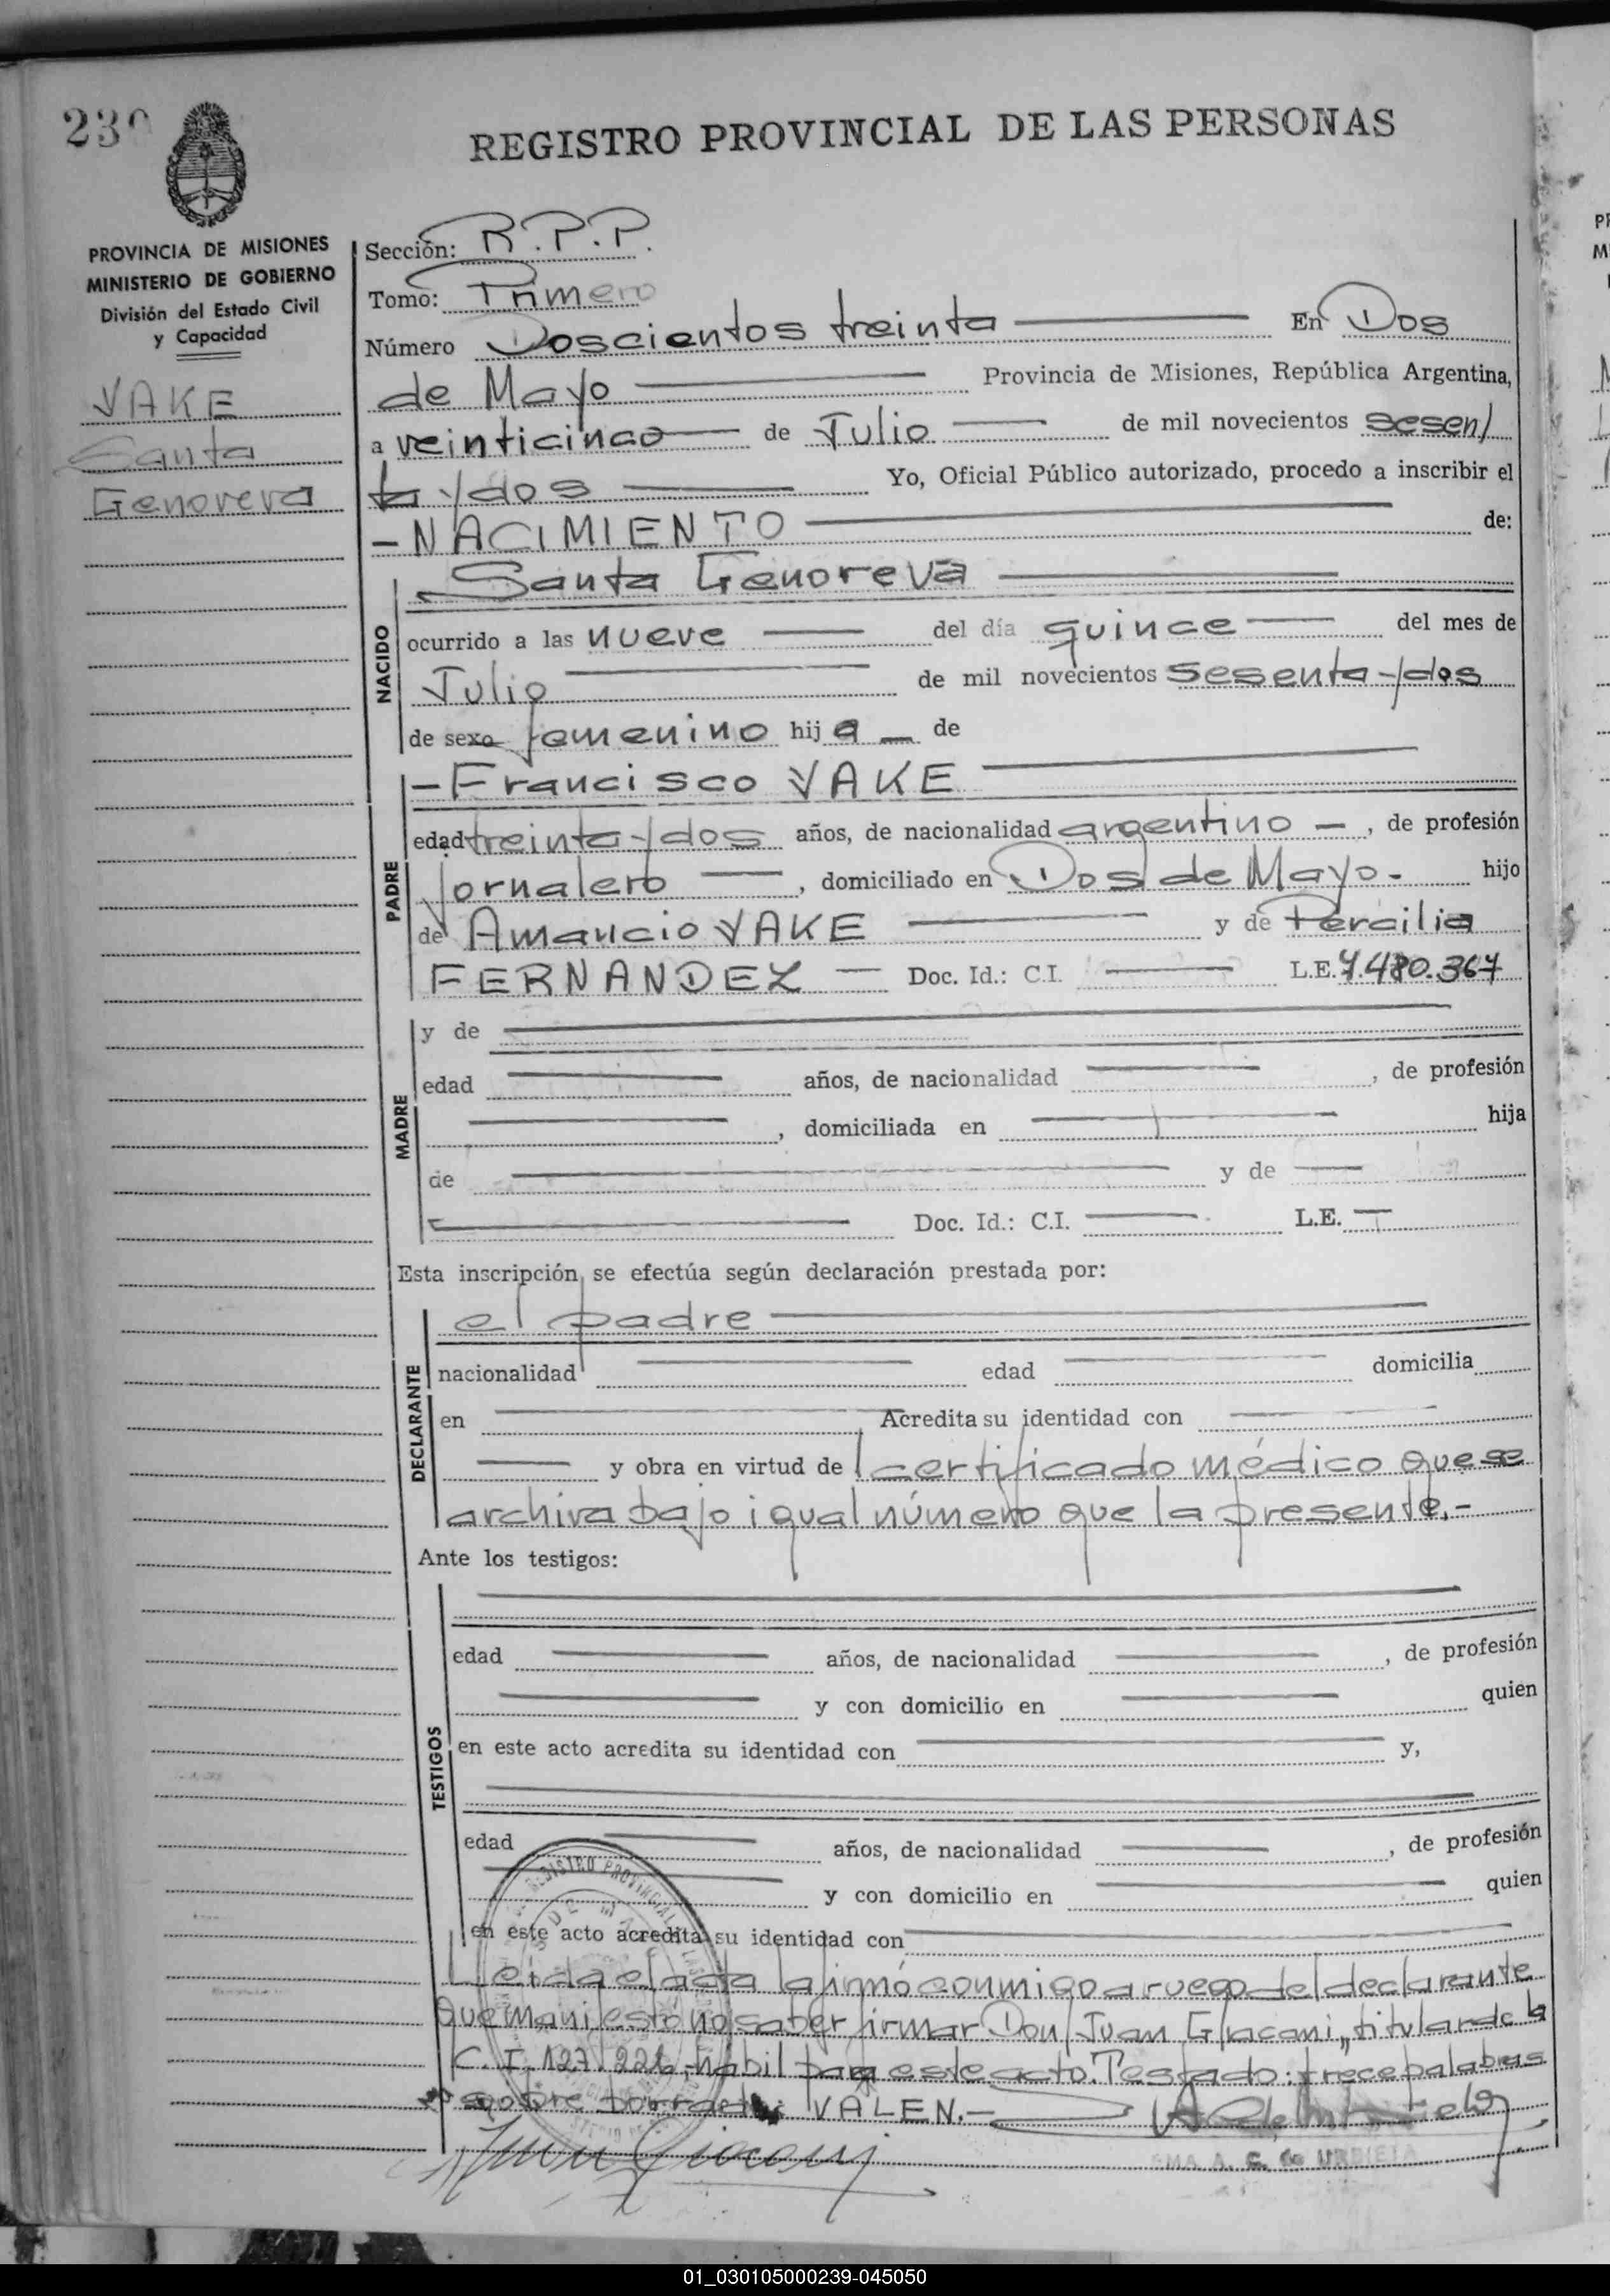 230
REGISTRO PROVINCIAL DE LAS PERSONAS
PROVINCIA DE MISIONES
MINISTERIO DE GOBIERNO
División del Estado Civil
y Capacidad
VAKE
Santa
Genoveva
Sección: R.P.P.
Tomo: Primero
Número Doscientos treinta En Dos
de Mayo Provincia de Misiones, República Argentina,
a veinticinco de Julio de mil novecientos sesen/
ta y dos Yo, Oficial Público autorizado, procedo a inscribir el
- NACIMIENTO de:
NACIDO
Santa Genoveva
ocurrido a las nueve del día quince del mes de
Julio de mil novecientos sesenta y dos
de sexo femenino hija de
PADRE
- Francisco VAKE
edad treinta y dos años, de nacionalidad argentino -, de profesión
jornalero, domiciliado en Dos de Mayo.- hijo
de Amancio VAKE y de Percilia
FERNANDEZ Doc. Id.: C.I. L.E. 7.480.367
MADRE
y de
edad años, de nacionalidad , de profesión
, domiciliada en hija
de y de
Doc. Id.: C.I. L.E.
Esta inscripción se efectúa según declaración prestada por:
DECLARANTE
el padre
nacionalidad edad domicilia
en Acredita su identidad con
y obra en virtud de certificado médico que se
archiva bajo igual número que la presente.-
Ante los testigos:
TESTIGOS
edad años, de nacionalidad , de profesión
y con domicilio en quien
en este acto acredita su identidad con y,
edad años, de nacionalidad , de profesión
y con domicilio en quien
en este acto acredita su identidad con
Leída el acta la firmó conmigo a ruego del declarante
que manifestó no saber firmar Don Juan Giacani, titular de la
C.I. 127.226, hábil para este acto. Testado: trece palabras
sobre borrado: VALEN.-
Juan Giacani
A. C. de URBIETA
REGISTRO PROVINCIAL
01_030105000239-045050